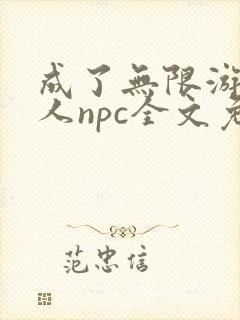 成了無限游
人npc全文免
范忠信